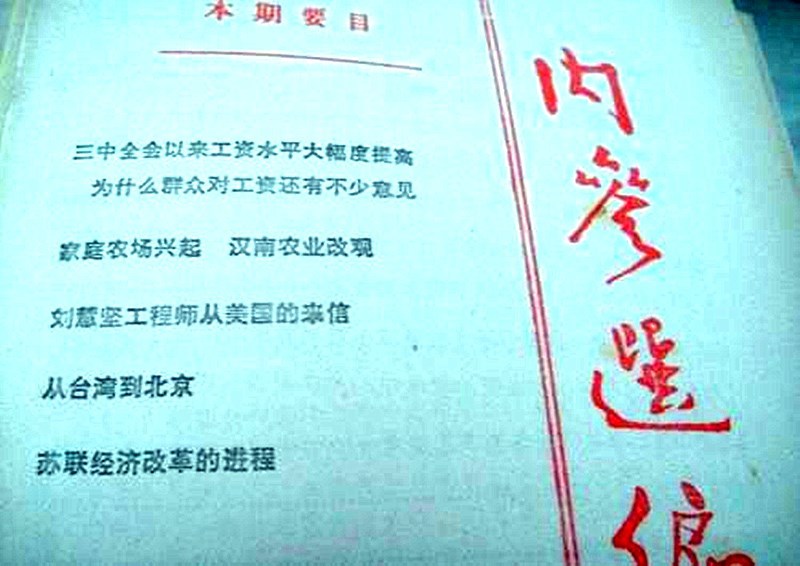 本期要目
三中全会以来工资水平大幅度提高
为什么群众对工资还有不少意见
家庭农场兴起 汉南农业改观
刘慧坚工程师从美国的来信
从台湾到北京
苏联经济改革的进程
内参选编